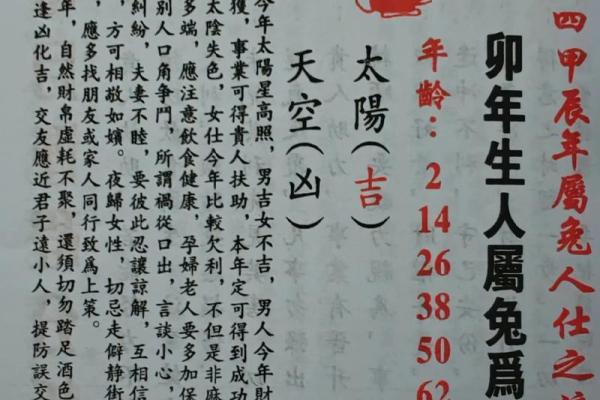 四甲辰年屬兔人仕之
卯年生人屬兔爲
年齡：2 14 26 38 50 62
太陽（吉）
天空（凶）
今年太陽星高照，男吉女不吉，男人今年財
獲，事業可得貴人扶助，本年定可得到成功
太陰失色，女仕今年比較欠利，不但是非麻
多端，應注意飲食健康，孕婦老人要多加保
別人口角爭鬥，所謂禍從口出，言談小心，
糾紛，夫妻不睦，要彼此忍讓諒解，互相信
，方可相敬如嬪。夜歸女性，切忌走僻靜街
，應多找朋友或家人同行致爲上策。
年，自然財帛虛耗不聚，還須切勿踏足酒色
逢凶化吉，交友應近君子遠小人，提防誤交